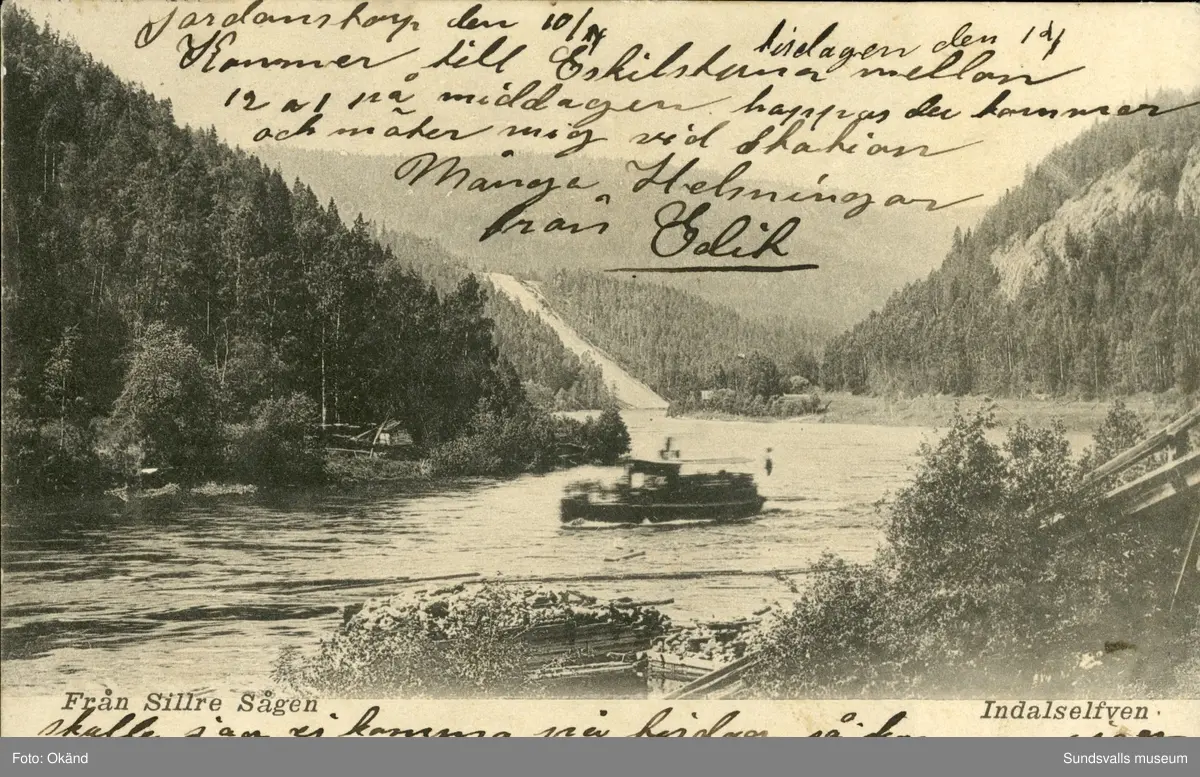 Jordanstorp den 10/4
Kommer till Eskilstuna tisdagen den 14/
mellan
12 a 1 på middagen happas du kommer
och möter mig vid Station
Många Helsningar
från Edik
Från Sillre Sågen
Indalselfven
skulle jag ej komma på tisdag så
Foto: Okänd
Sundsvalls museum